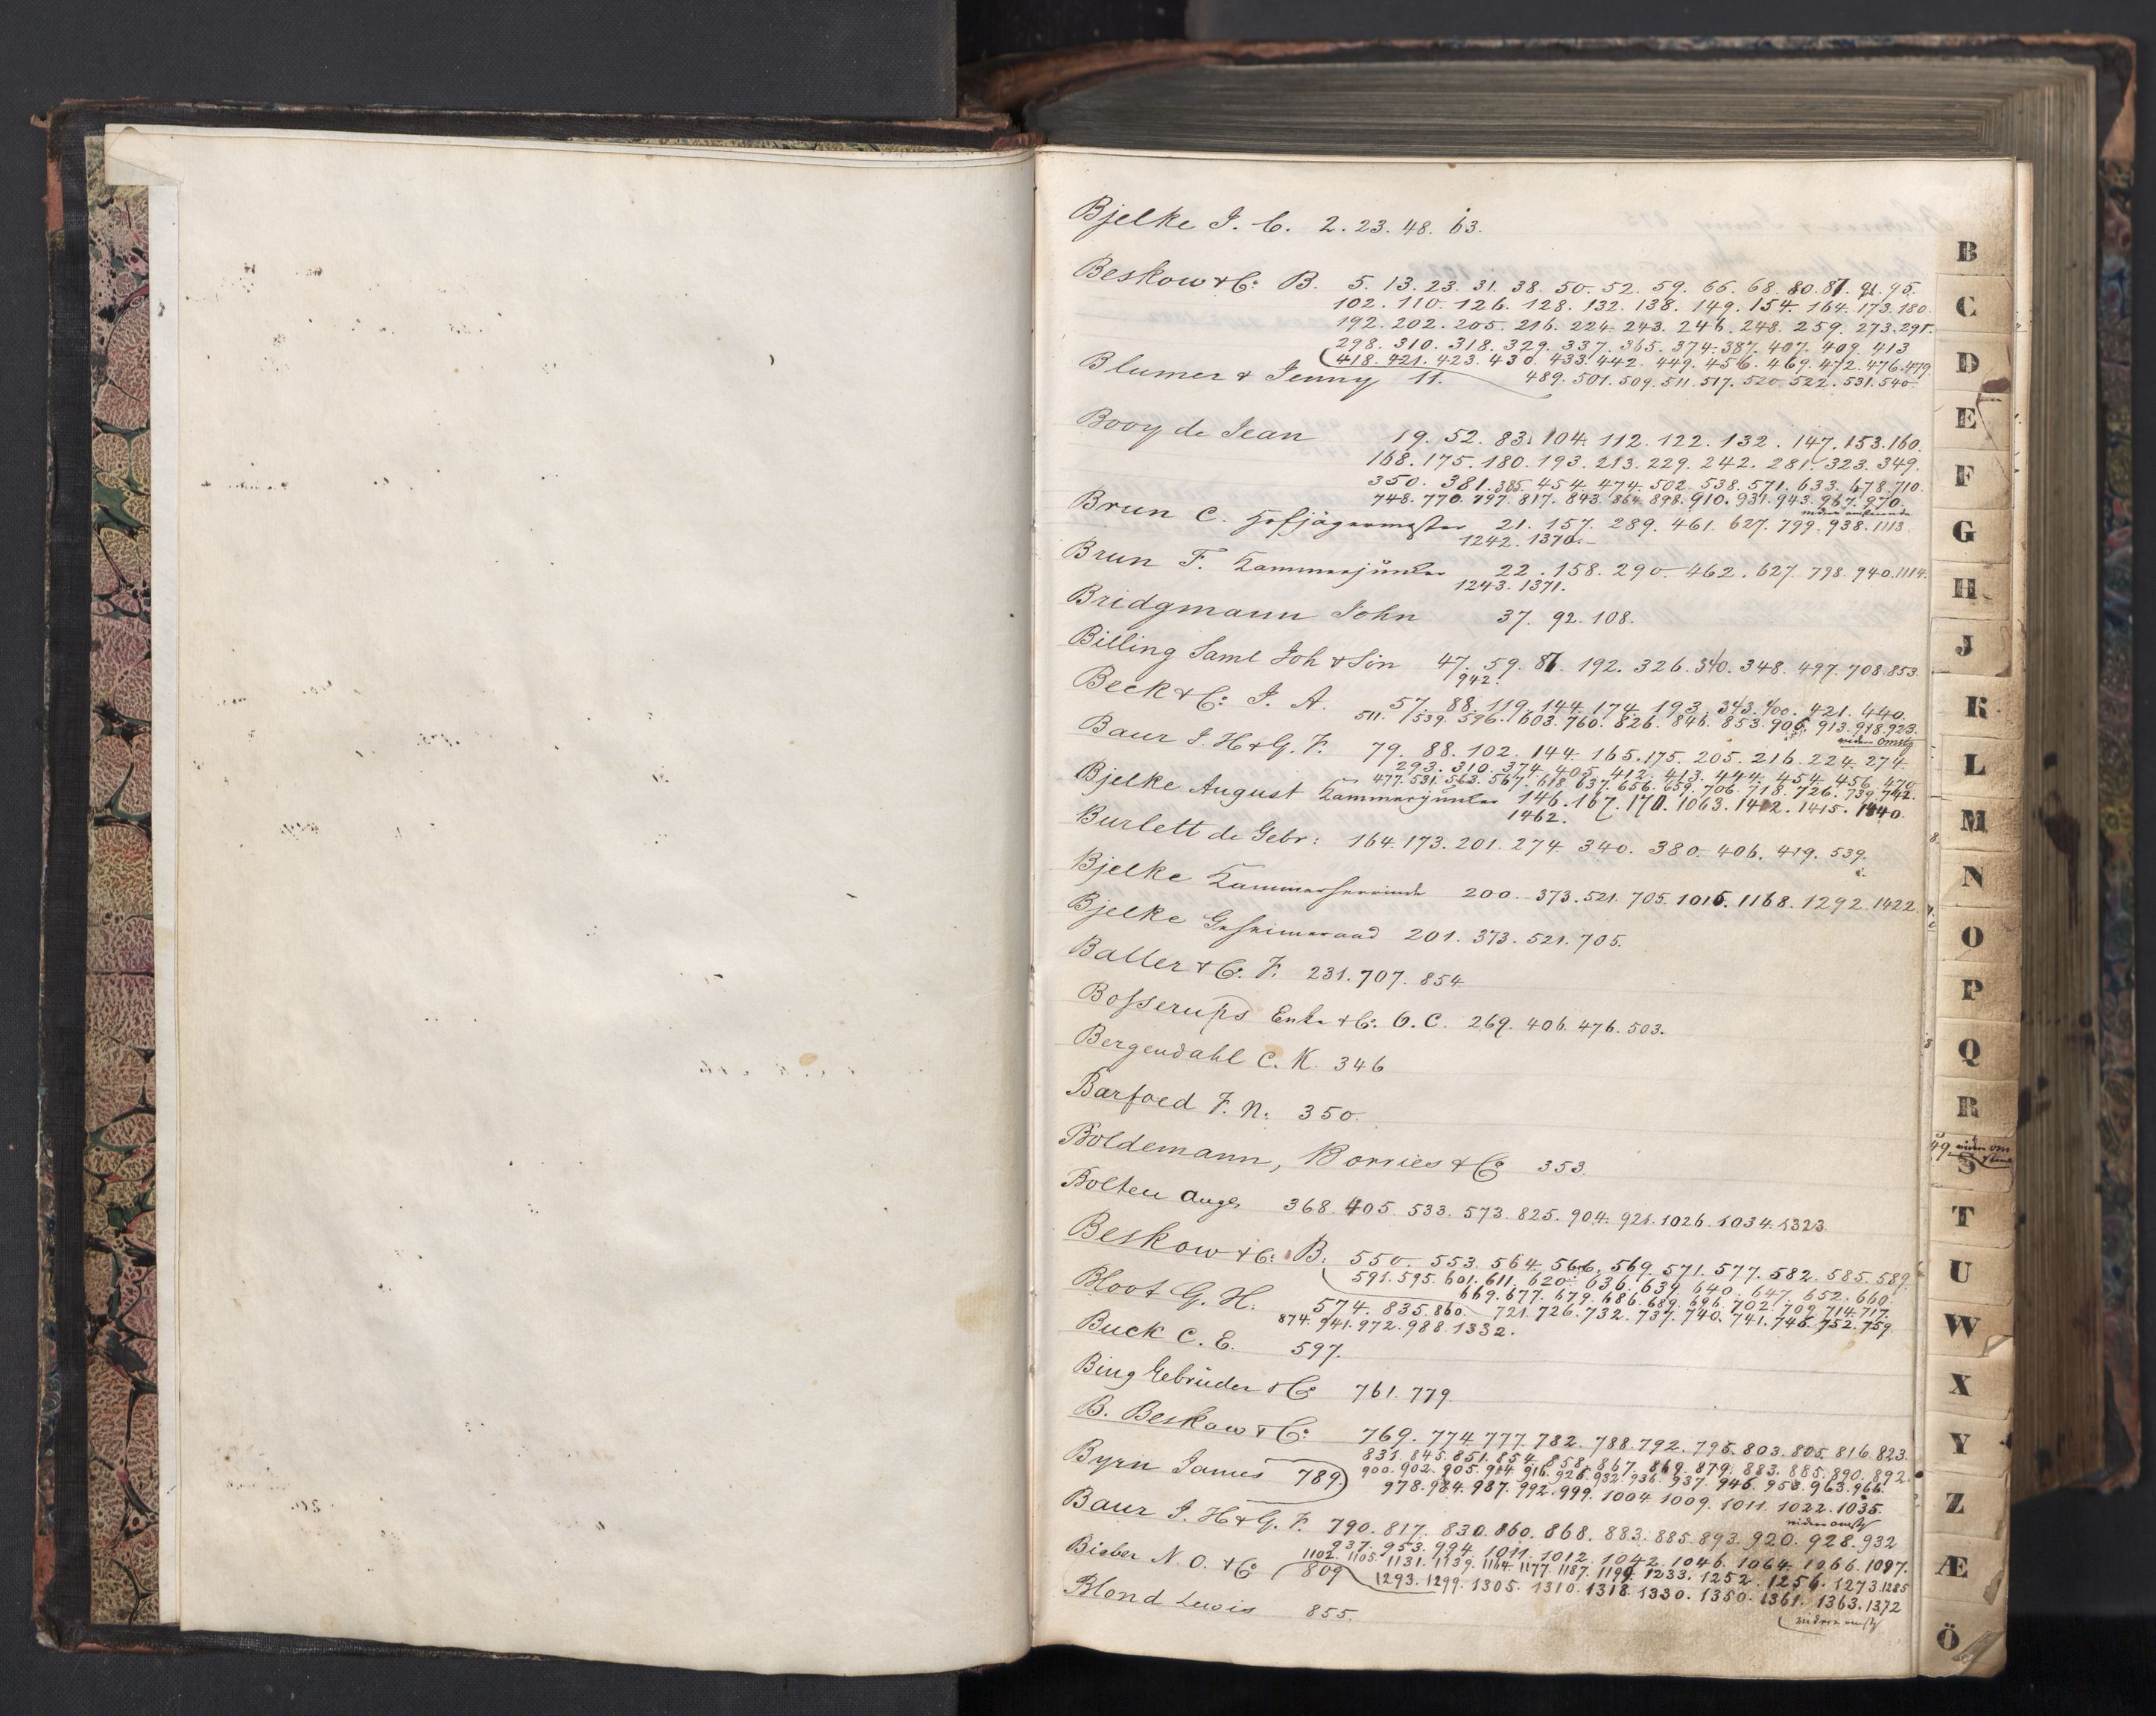 Bjelke J. C. 2. 23. 48. 63.
Beskow & Co: B. 5. 13. 23. 31. 38. 50. 52. 59. 66. 68. 80. 87. 91. 95.
102. 110. 126. 128. 132. 138. 149. 154. 164. 173. 180.
192. 202. 205. 216. 224. 243. 246. 248. 259. 273. 291.
298. 310. 318. 329. 337. 365. 374. 387. 407. 409. 413
418. 421. 423. 430. 433. 442. 449. 456. 469. 472. 476. 479.
Blumer & Jenny 11. 489. 501. 509. 511. 517. 520. 522. 531. 540.
Booy de Jean 19. 52. 83. 104. 112. 122. 132. 147. 153. 160.
168. 175. 180. 193. 213. 229. 242. 281. 323. 349.
350. 381. 385. 454. 474. 502. 538. 571. 633. 678. 710.
748. 770. 797. 817. 843. 864. 898. 910. 931. 943. 967. 970.
Brun C. Hofjägermester 21. 157. 289. 461. 627. 799. 938. 1113.
1242. 1370.
Brun F. Kammerjunker 22. 158. 290. 462. 627. 798. 940. 1114.
1243. 1371.
Bridgmann John 37. 92. 108.
Billing Saml Joh & Sön 47. 59. 87. 192. 326. 340. 348. 497. 708. 853.
942.
Beck & Co: J. A. 57. 88. 119. 144. 174. 193. 343. 400. 421. 440.
511. 539. 596. 603. 760. 826. 846. 853. 906. 913. 918. 923.
videre Omstg
Baur J. H & G. F. 79. 88. 102. 144. 165. 175. 205. 216. 224. 274.
293. 310. 374. 405. 412. 413. 444. 454. 456. 470.
477. 531. 563. 567. 618. 637. 656. 659. 706. 718. 726. 739. 742.
Bjelke August Kammerjunker 146. 167. 170. 1063. 1412. 1415. 1440.
1462.
Burlett de Gebr: 164. 173. 201. 274. 340. 380. 406. 419. 539.
Bjelke Kammerherreinde 200. 373. 521. 705. 1015. 1168. 1292. 1422
Bjelke Geheimeraad 201. 373. 521. 705.
Baller & Co. F. 231. 707. 854
Bosserups Enke & Co: O. C. 269. 406. 476. 503.
Bergendahl C. K. 346
Barfoed F. N. 350.
Boldemann, Borries & Co 353.
Bolten Augs 368. 405. 533. 573. 825. 904. 921. 1026. 1034. 1323.
Beskow & Co: B. 550. 553. 564. 566. 569. 571. 577. 582. 585. 589.
591. 595. 601. 611. 620. 636. 639. 640. 647. 652. 660.
669. 677. 679. 686. 689. 696. 702. 709. 714. 717.
Bloot G. H. 574. 835. 860. 721. 726. 732. 737. 740. 741. 746. 752. 759.
874. 941. 972. 988. 1332.
Buck C. E. 597.
Bing Gebrüder & Co 761. 779.
B. Beskow & Co: 769. 774. 777. 782. 788. 792. 795. 803. 805. 816. 823.
831. 845. 851. 854. 858. 867. 869. 879. 883. 885. 890. 892.
Byrn James 789. 900. 902. 905. 914. 916. 926. 932. 936. 937. 946. 958. 963. 966.
978. 984. 987. 992. 999. 1004. 1009. 1011. 1022. 1035.
videre omstg
Baur J. H & G. F. 790. 817. 830. 860. 868. 883. 885. 893. 920. 928. 932
937. 953. 994. 1011. 1012. 1042. 1046. 1064. 1066. 1097.
1102. 1105. 1131. 1139. 1164. 1177. 1187. 1199. 1233. 1252. 1256. 1273. 1285
Bieber N. O. & Co 809 1293. 1299. 1305. 1310. 1318. 1330. 1350. 1361. 1363. 1372
videre omstg
Blond Lewis 855.
B
C
D
E
F
G
H
J
K
L
M
N
O
P
Q
R
S
T
U
W
X
Y
Z
Æ
Ö